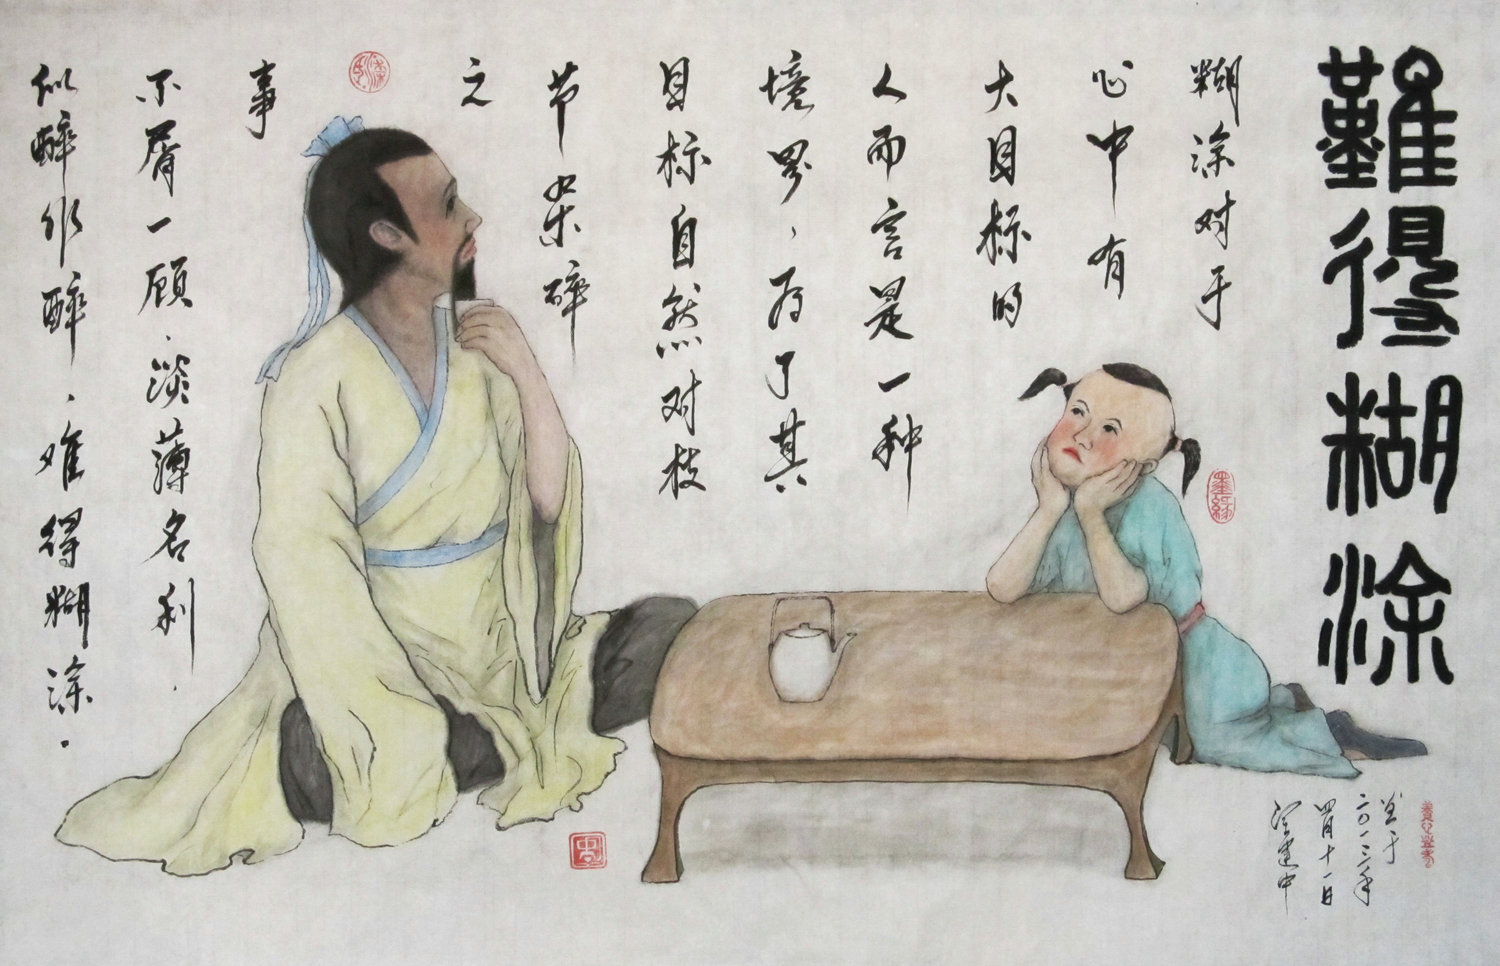 難得糊涂
糊涂对于
心中有
大目标的
人而言是一种
境界、为了其
目标自然对枝
节杂碎
之
事
不屑一顾、淡薄名利.
似醉非醉、难得糊涂.
于
二〇一三年
四月十一日
建中